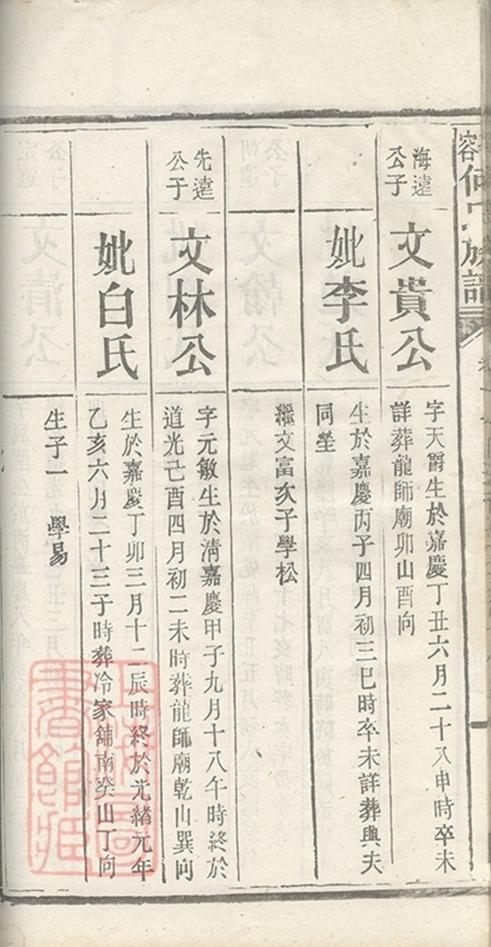 何氏族譜
海達
公子
文貴公
字天爵生於嘉慶丁丑六月二十八申時卒未
詳葬龍師廟卯山酉向
妣李氏
生於嘉慶丙子四月初三巳時卒未詳葬與夫
同塋
繼文富次子學松
先達
公子
文林公
字元敏生於清嘉慶甲子九月十八午時終於
道光己酉四月初二未時葬龍師廟乾山巽向
妣白氏
生於嘉慶丁卯三月十二辰時終於光緒元年
乙亥六月二十三子時葬冷家鋪南癸山丁向
生子一 學易